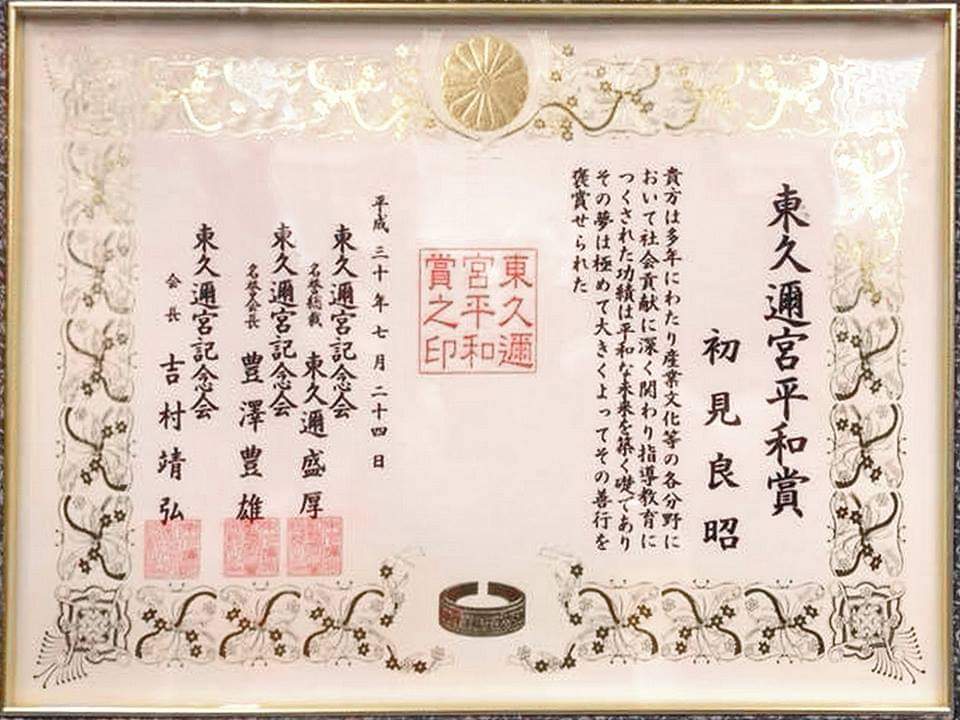 東久邇宮平和賞
初見良昭
貴方は多年にわたり産業文化等の各分野に
おいて社会貢献に深く関わり指導教育に
つくされた功績は平和な未来を築く礎であり
その夢は極めて大きくよってその善行を
褒賞せられた
東久邇
宮平和
賞之印
平成三十年七月二十四日
東久邇宮記念会
名誉総裁 東久邇盛厚
東久邇宮記念会
名誉会長 豊澤豊雄
東久邇宮記念会
会長 吉村靖弘